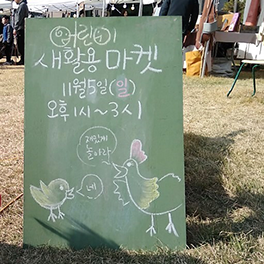 어린이
새활용 마켓
11월5일(일)
오후1시~3시
재밌게
놀아라
네